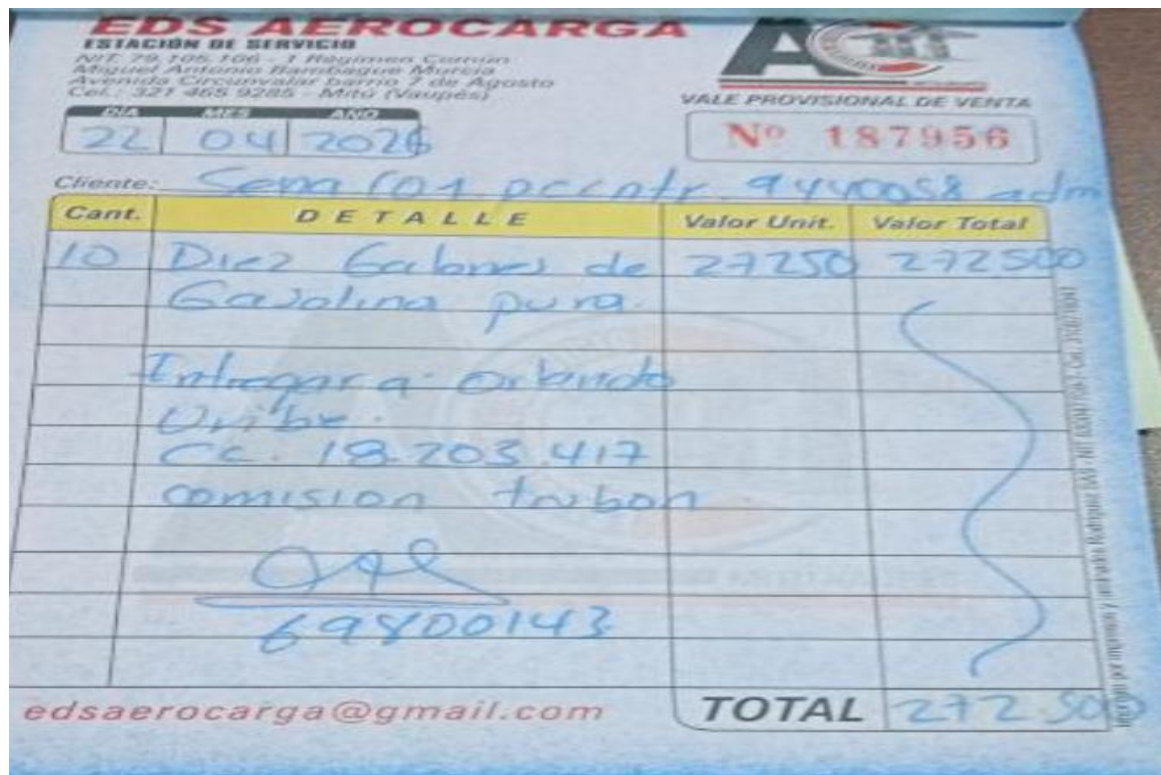 EDS AEROCARGA
ESTACIÓN DE SERVICIO
NIT. 79.105.106 - 1 Régimen Común
Miguel Antonio Bambague Murcia
Avenida Circunvalar barrio 7 de Agosto
Cel.: 321 465 9285 - Mitú (Vaupés)
VALE PROVISIONAL DE VENTA
DÍA MES AÑO
22 04 2026
Nº 187956
Cliente: Sena 9440058 adm
Cant. DETALLE Valor Unit. Valor Total
10 Diez Galones de 27250 272500
Gasolina pura.
Entregar a: Orlando
Uribe.
CC. 18.203.417
comision
69800143
edsaerocarga@gmail.com
TOTAL 272.500